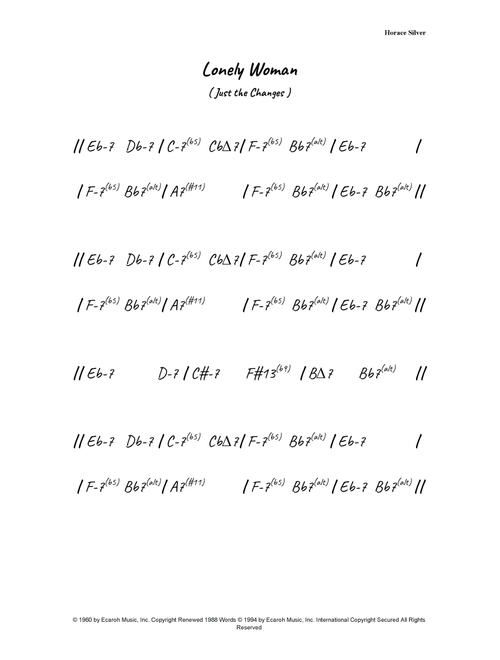 Horace Silver
Lonely Woman
( Just the Changes )
// Eb-7 Db-7 / C-7(b5) CbΔ7/ F-7(b5) Bb7(alt) / Eb-7 /
/ F-7(b5) Bb7(alt)/ A7(#11) / F-7(b5) Bb7(alt) / Eb-7 Bb7(alt) //
// Eb-7 Db-7 / C-7(b5) CbΔ7/ F-7(b5) Bb7(alt) / Eb-7 /
/ F-7(b5) Bb7(alt)/ A7(#11) / F-7(b5) Bb7(alt) / Eb-7 Bb7(alt) //
// Eb-7 D-7 / C#-7 F#13(b9) / BΔ7 Bb7(alt) //
// Eb-7 Db-7 / C-7(b5) CbΔ7/ F-7(b5) Bb7(alt) / Eb-7 /
/ F-7(b5) Bb7(alt)/ A7(#11) / F-7(b5) Bb7(alt) / Eb-7 Bb7(alt) //
© 1960 by Ecaroh Music, Inc. Copyright Renewed 1988 Words © 1994 by Ecaroh Music, Inc. International Copyright Secured All Rights
Reserved